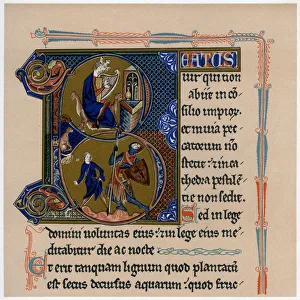 BEATUS
uir qui non
abiit in cō
silio impior.
et in uia pec
catorum nō
stetit: et in ca
thedra pestilē
tie non sedit.
Sed in lege
domini uoluntas eius: et in lege eius me
ditabitur die ac nocte
Et erit tanquam lignum quod plantatū
est secus decursus aquarum: quod fruc